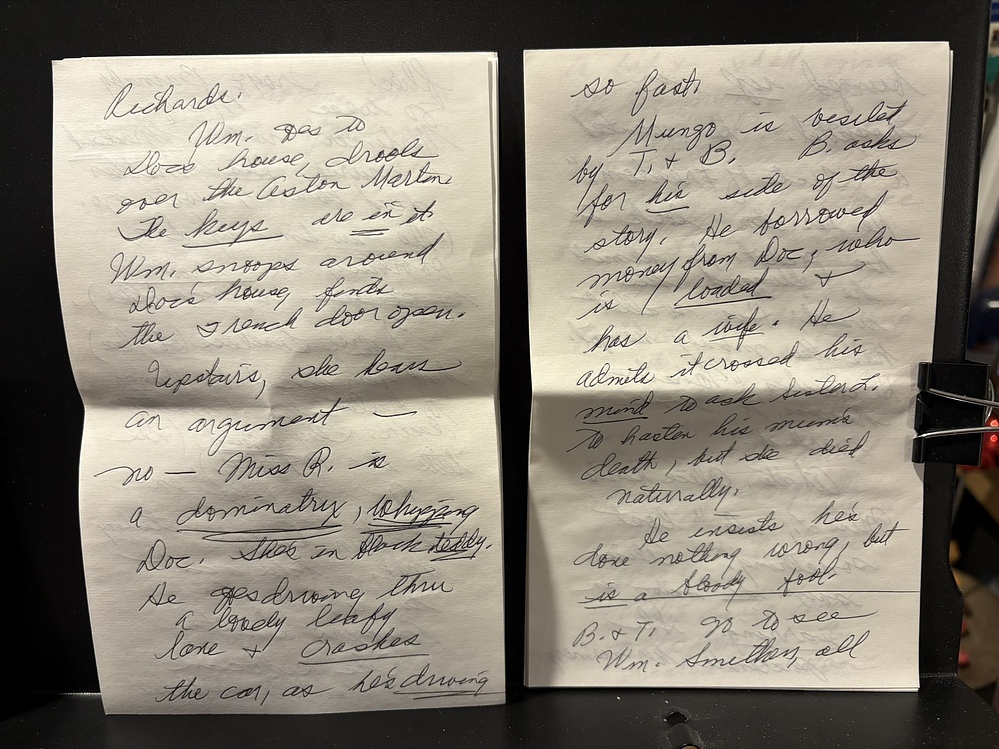 Richards.
Wm. goes to
Doc's house, drools
over the Aston Martin.
The keys are in it
Wm. snoops around
Doc's house, finds
the French door open.
Upstairs, she hears
an argument —
no — Miss R. is
a dominatrix, whipping
Doc. She's in black teddy.
He goes driving thru
a lovely leafy
lane & crashes
the car, as he's driving
so fast.
Mungo is visited
by T. & B. B. asks
for his side of the
story. He borrowed
money from Doc, who
is loaded &
has a wife. He
admits it crossed his
mind to ask Sister L.
to hasten his mum's
death, but she died
naturally.
He insists he's
done nothing wrong, but
is a bloody fool.
B. & T. go to see
Wm. Smithers, all